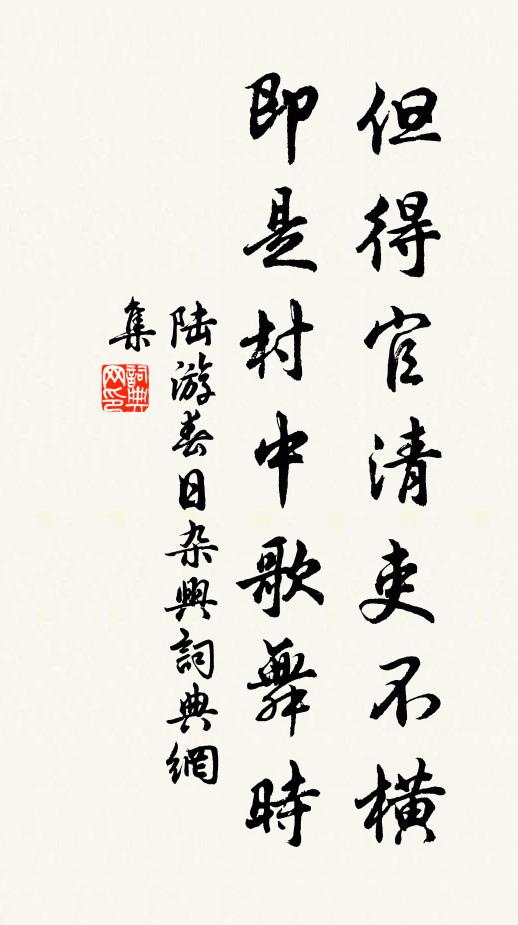 但得官清吏不橫
即是村中歌舞時
陆游春日杂興詞典網
集
詞典
网印